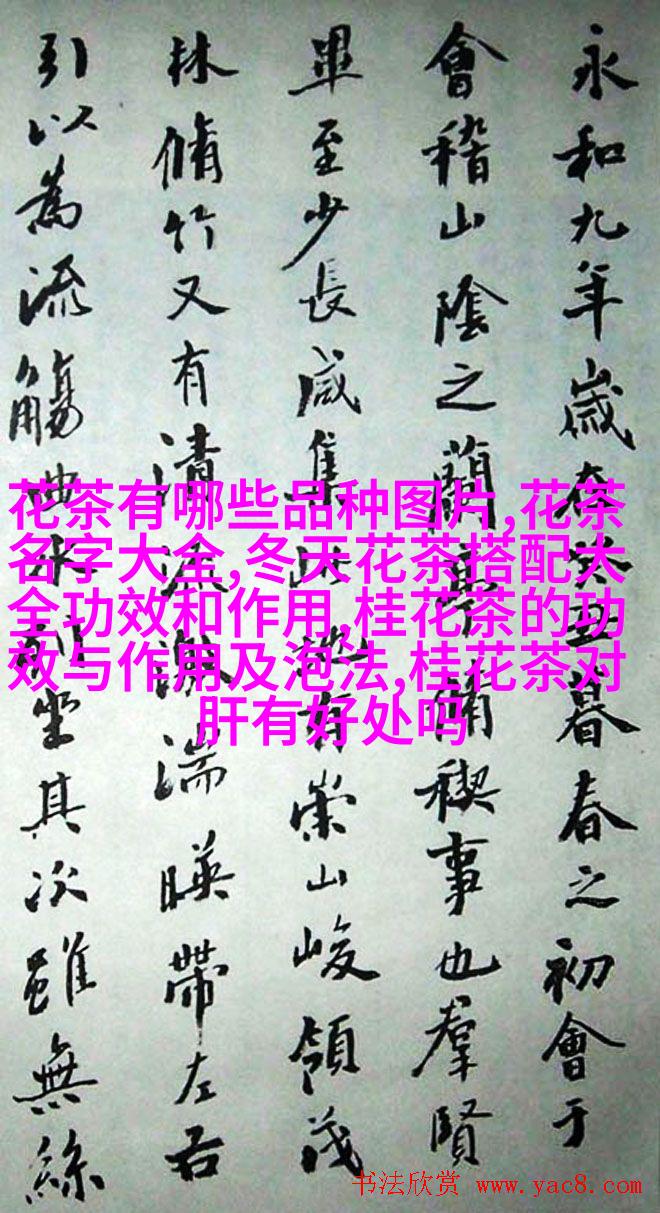 永和九年歲在癸丑暮春之初會于
會稽山陰之蘭亭脩稧事也羣賢
畢至少長咸集此地有崇山峻領茂
林脩竹又有清流激湍暎帶左右
引以為流觴曲水列坐其次雖無絲
花茶有哪些品种图片,花茶
名字大全,冬天花茶搭配大
全功效和作用,桂花茶的功
效与作用及泡法,桂花茶对
肝有好处吗
书法欣赏 www.yac8.com